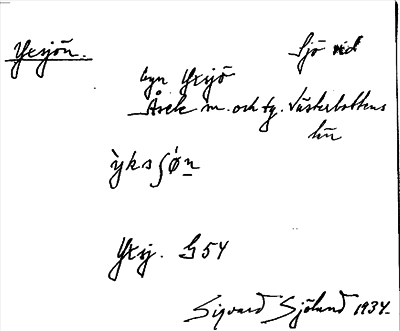 Yxsjön.
Sjö vid
byn Yxsjö
Åsele m. och tg. Västerbottens
län
ỳksʃǿn
Yxsj. G54
Sigvard Sjölund 1934.